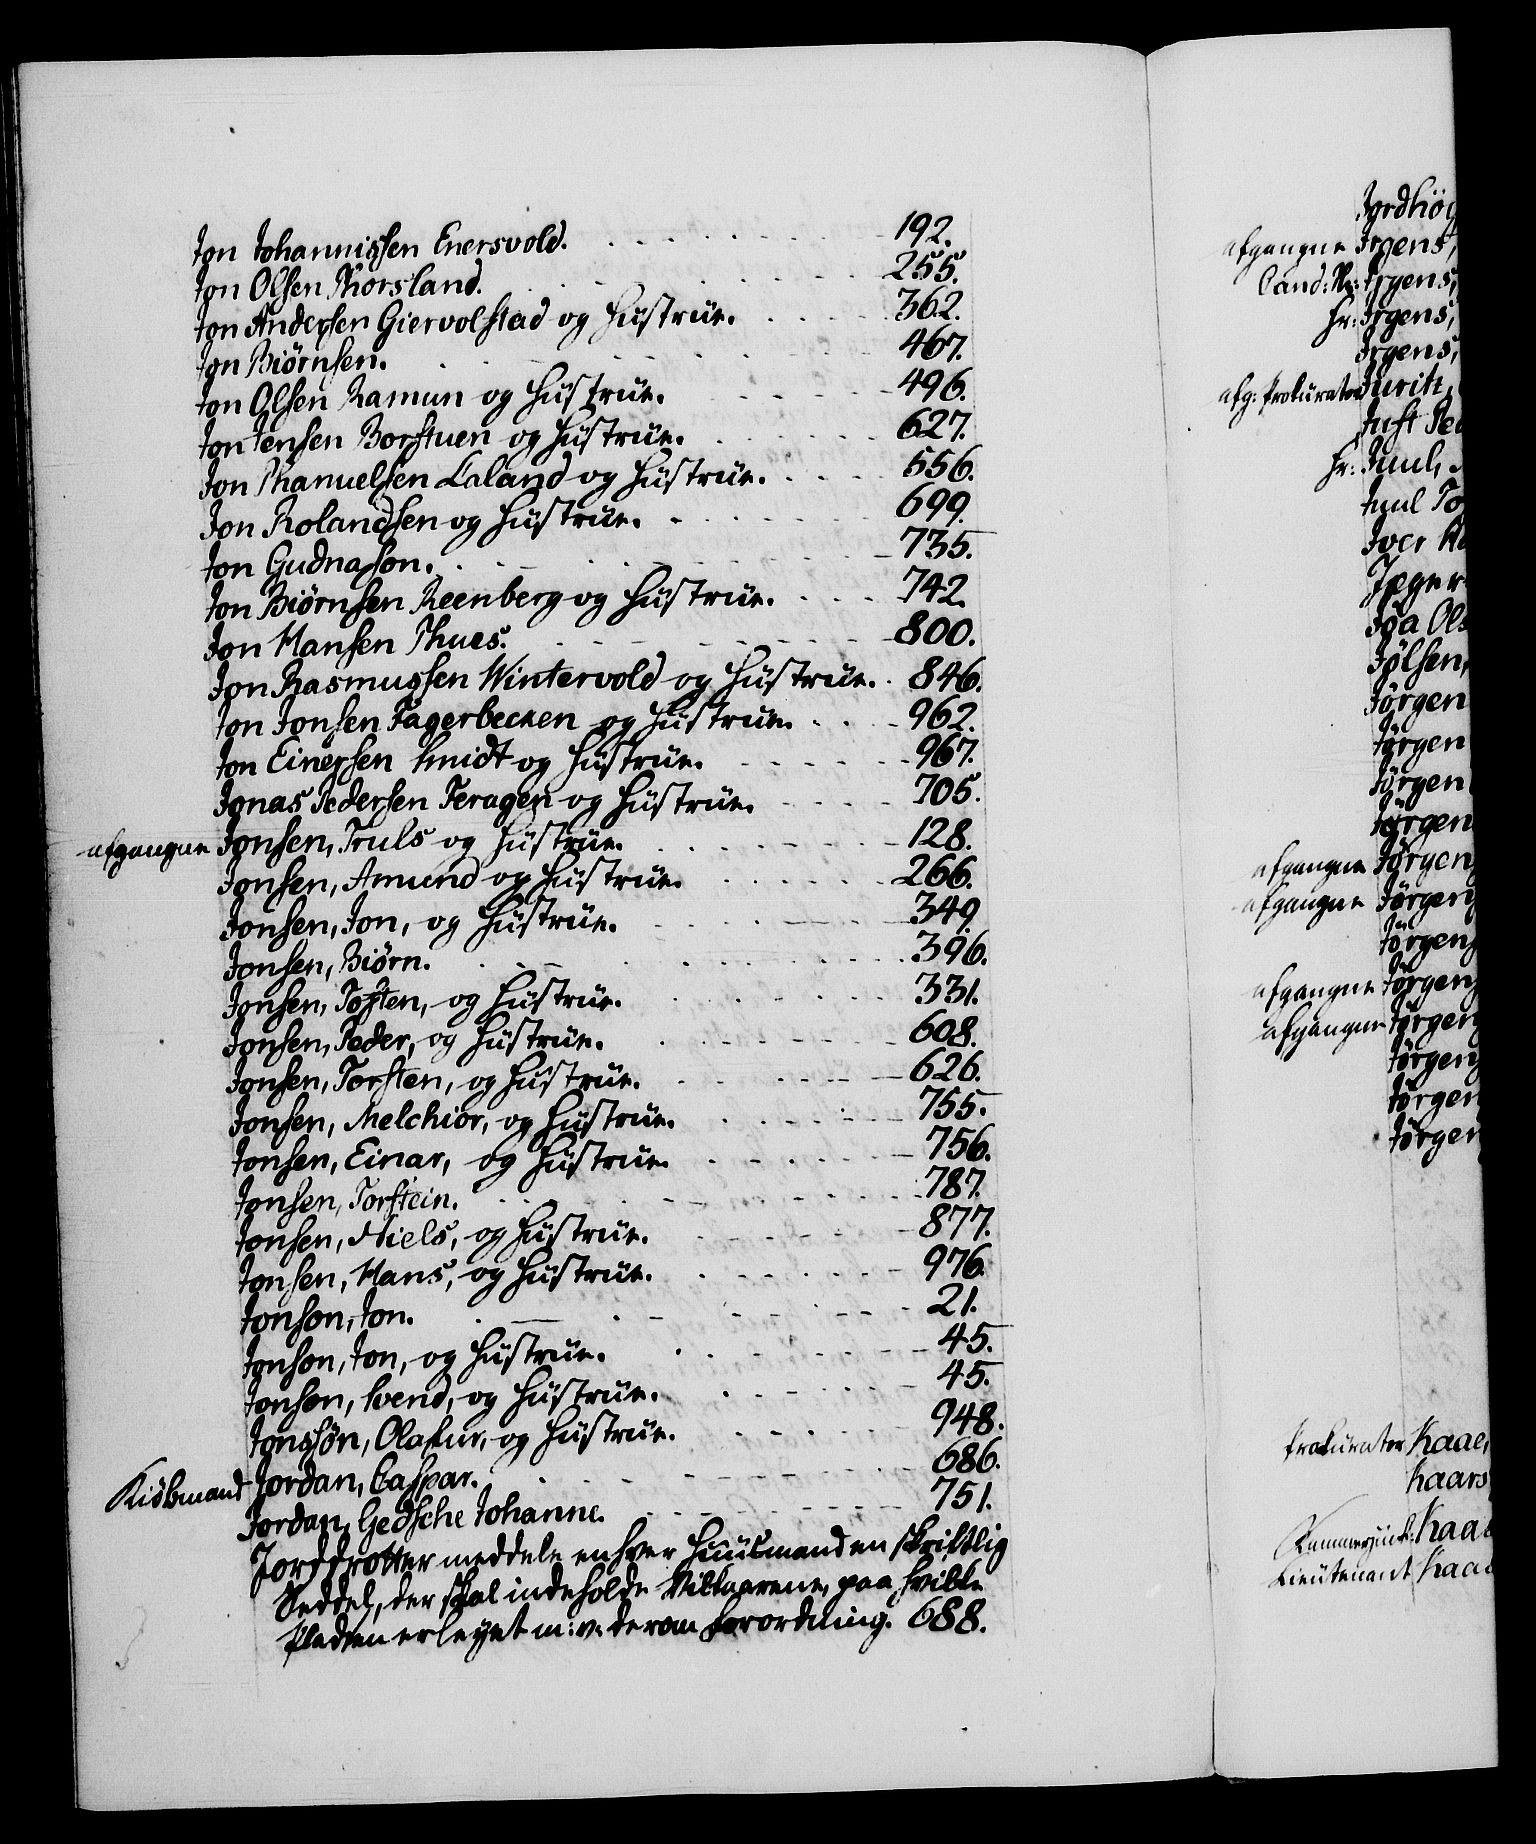 Jon Johannissen Enersvold. 192.
Jon Olsen Thorsland. 255.
Jon Andersen Giervolstad og Hustrue. 362.
Jon Biørnsen. 467.
Jon Olsen Ramun og Hustrue. 496.
Jon Jensen Borstuen og Hustrue. 627.
Jon Thanuelsen Laland og Hustrue. 556.
Jon Rolandsen og Hustrue. 699.
Jon Gudnason. 735.
Jon Biørnsen Reenberg og Hustrue. 742.
Jon Hansen Thues. 800.
Jon Rasmussen Wintervold og Hustrue. 846.
Jon Jonsen Fagerbecken og Hustrue. 962.
Jon Einersen Smidt og Hustrue. 967.
Jonas Pedersen Feragen og Hustrue. 705.
afgangne Jonsen, Truls og Hustrue. 128.
Jonsen, Amund og Hustrue. 266.
Jonsen, Jon, og Hustrue. 349.
Jonsen, Biørn. 396.
Jonsen, Tosten, og Hustrue. 331.
Jonsen, Peder, og Hustrue. 608.
Jonsen, Torsten, og Hustrue. 626.
Jonsen, Melchior, og Hustrue. 755.
Jonsen, Einar, og Hustrue. 756.
Jonsen, Torstein. 787.
Jonsen, Niels, og Hustrue. 877.
Jonsen, Hans, og Hustrue. 976.
Jonson, Jon. 21.
Jonson, Jon, og Hustrue. 45.
Jonson, Svend, og Hustrue. 45.
Jonssøn, Olafur, og Hustrue. 948.
Kiøbmand Jordan, Caspar. 686.
Jordan, Gedsche Johanne. 751.
Jorddrotter meddele enhver Huusmand en skriftlig
Seddel, der skal indeholde Vilkaarene, paa hvilke
Pladsen er leyet m: v: derom Forordning. 688.
Jordhög
afgangne Irgens,
Cand: Irgens,
Hr: Irgens,
Irgens,
afg: Prokurator Juritz,
Just Ped
Hr: Juul,
Juul
Iver
Jæger
Joa Ols
Jølsen,
Jørgen
Jørgen
Jørgen
Jørgen
afgangne Jørgen
afgangne Jørgen
Jørgen
afgangne Jørgen
afgangne Jørgen
Jørgen
Jørgen
Jørgen
Prokurator Kaae,
Kaars
Kammerjunk: Kaas
Lieutenant Kaas